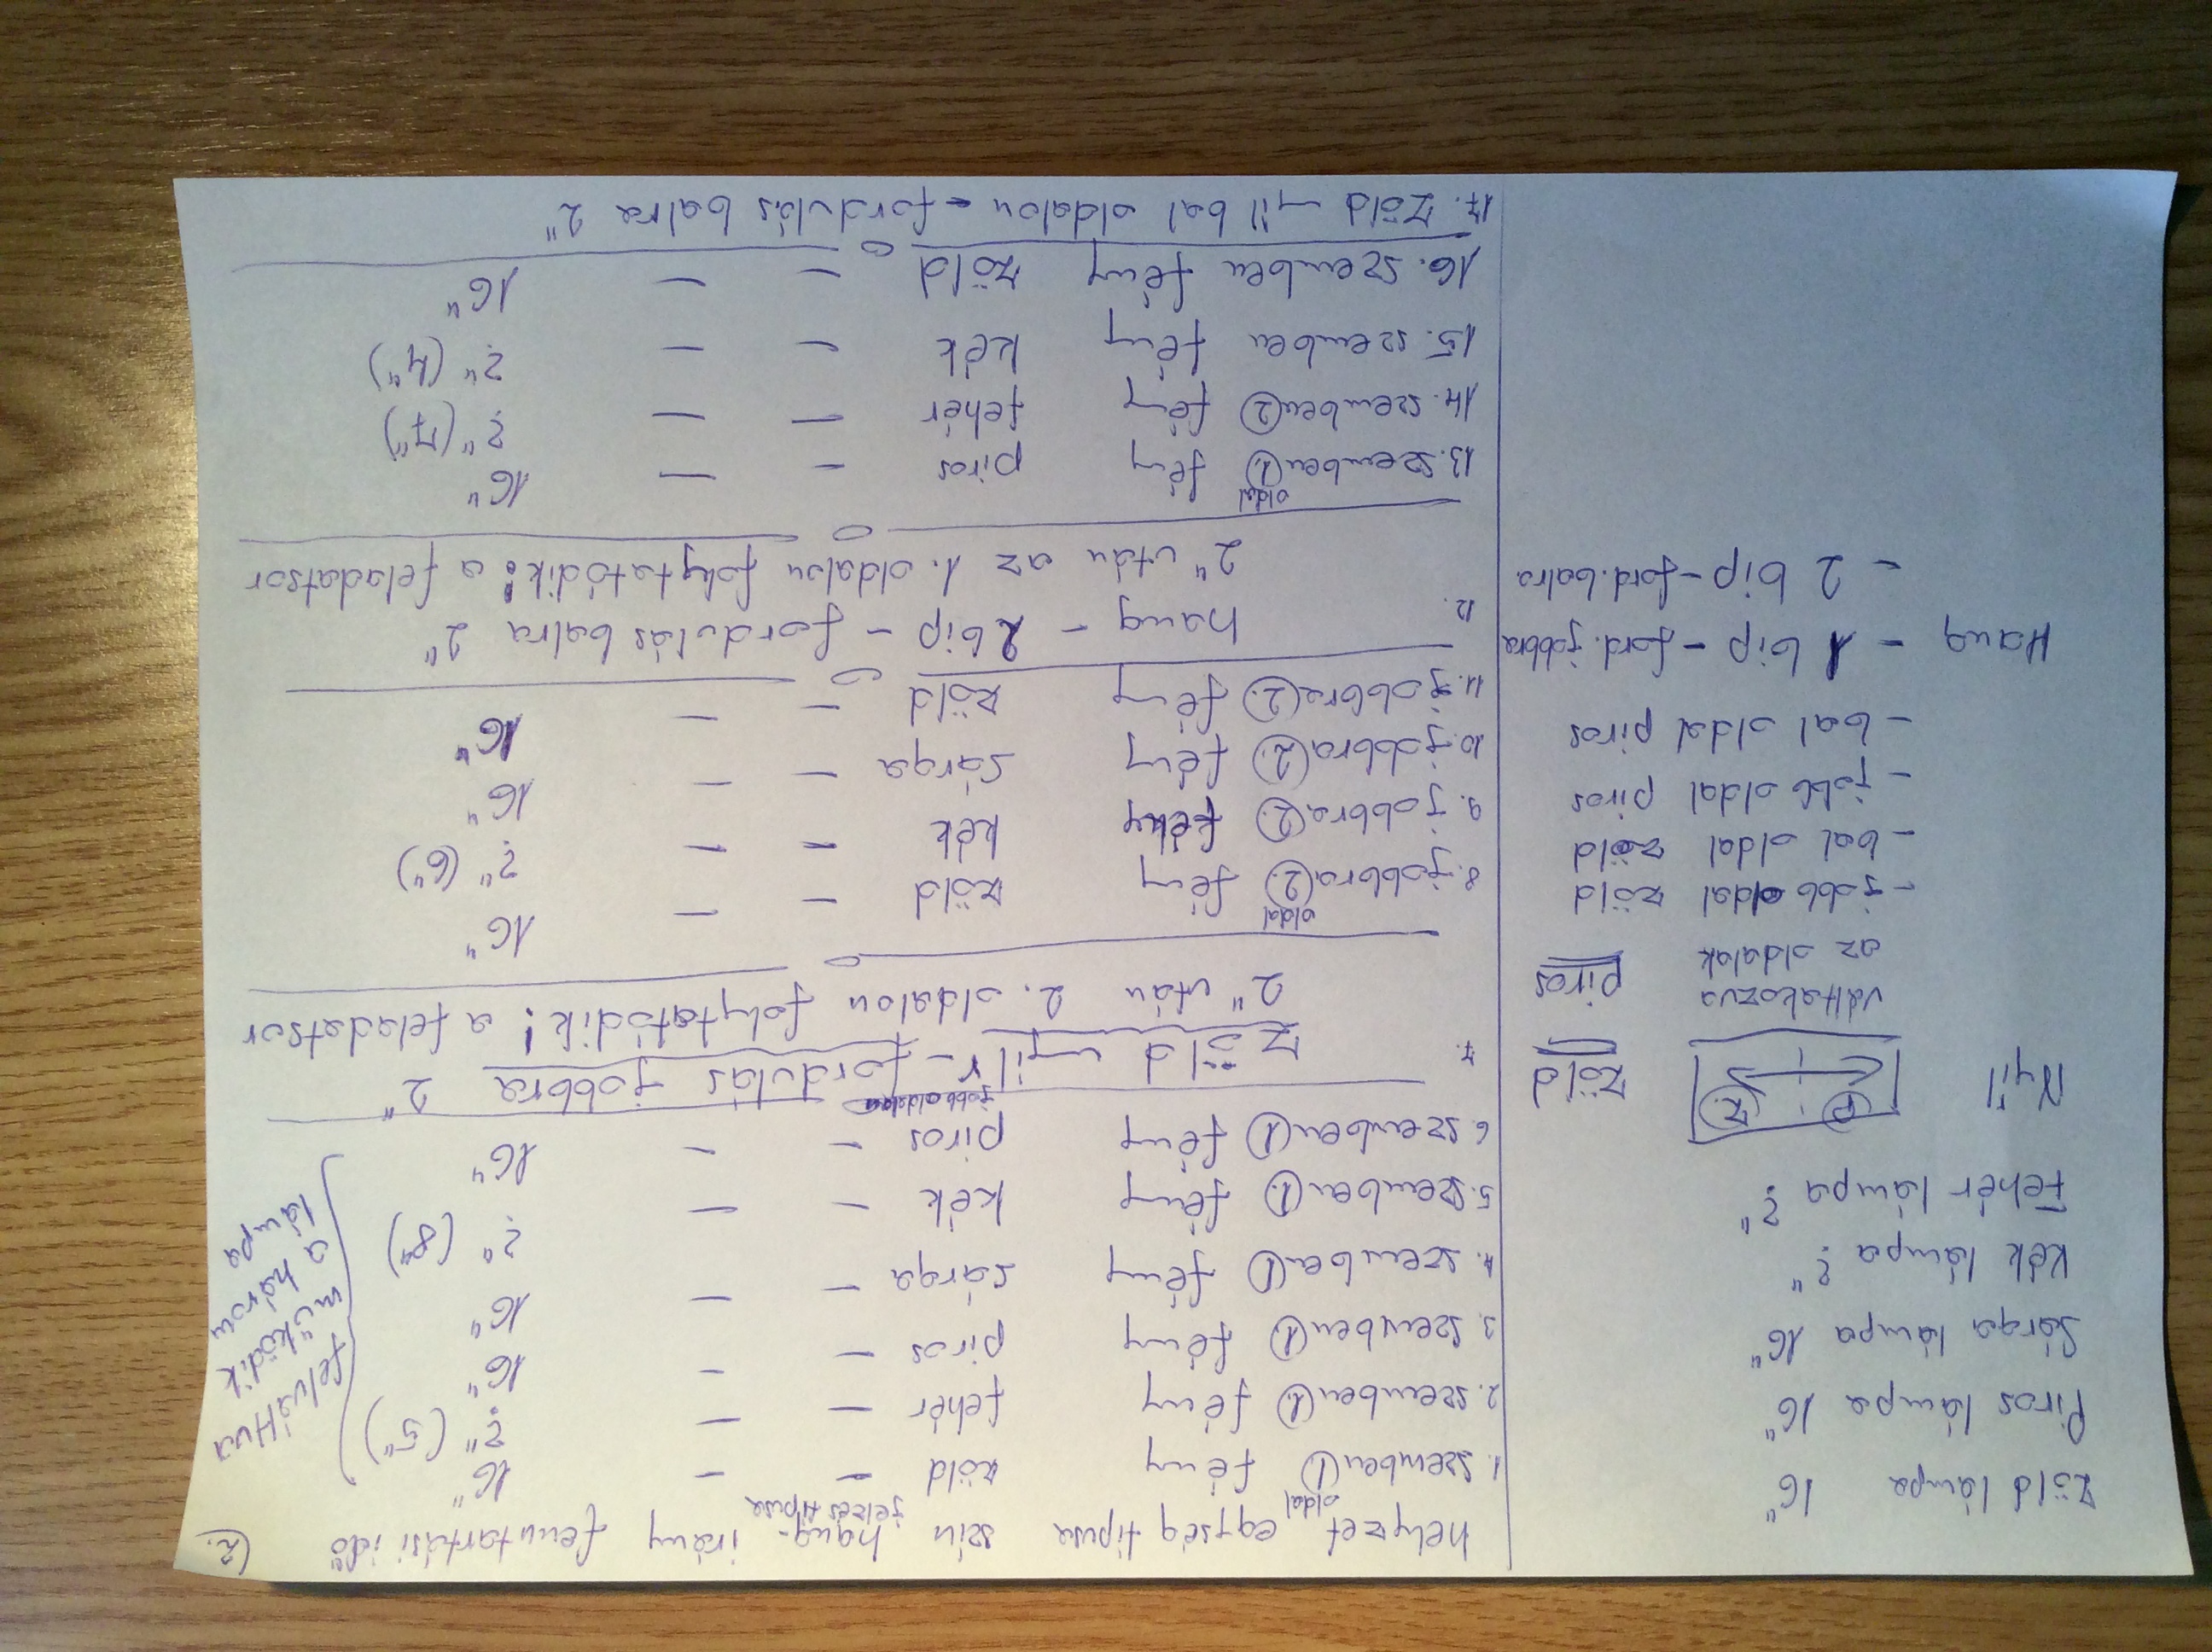 Zöld lámpa 16"
Piros lámpa 16"
Sárga lámpa 16"
Kék lámpa ?"
Fehér lámpa ?"
Nyíl P Z. zöld
váltakozva piros
az oldalak
- jobb oldal zöld
- bal oldal zöld
- jobb oldal piros
- bal oldal piros
Hang - 1 bip - ford. jobbra
- 2 bip - ford. balra
helyzet egység típusa szín hang- irány fenntartási idő 2.
jelzés típusa
oldal
1. szemben 1. fény zöld - - 16"
2. szemben 1. fény fehér - - ?" (5")
3. szemben 1. fény piros - - 16"
4. szemben 1 fény sárga - - 16"
5. szemben 1. fény kék - - ?" (8")
6. szemben 1 fény piros - - 16"
felváltva
működik
a három
lámpa
jobb oldalon
7. Zöld nyíl - fordulás jobbra 2"
2" után 2. oldalon folytatódik! a feladatsor
oldal
8. jobbra 2. fény zöld - - 16"
9. jobbra 2. fény kék - - ?" (6")
10. jobbra 2. fény sárga - - 16"
11. jobbra 2. fény zöld - - 16"
12. hang - 2 bip - fordulás balra 2"
2" után az 1. oldalon folytatódik! a feladatsor
oldal
13. szemben 1. fény piros - - 16"
14. szemben 2 fény fehér - - ?" (7")
15. szemben fény kék - - ?" (4")
16. szemben fény zöld - - 16"
17. Zöld nyíl bal oldalon - fordulás balra 2"